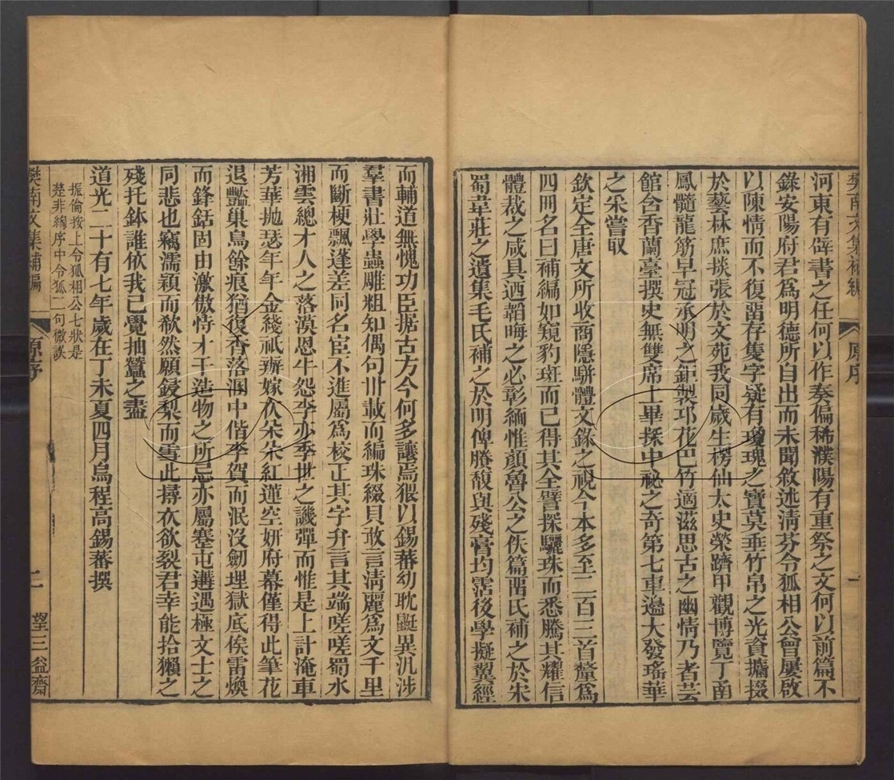 樊南文集補編
原序
河東有辟書之任何以作奏偏稀濮陽有重祭之文何以前篇不
錄安陽府君爲明德所自出而未聞敘述清芬令狐相公曾屢啟
以陳情而不復畱存隻字疑有瓊瑰之寶莫垂竹帛之光資攟掇
於藝林庶掞張於文苑我同歲生楞仙太史榮躋甲觀博覽丁函
鳳髓龍筋早冠承明之鉅製邛花巴竹適滋思古之幽情乃者芸
館含香蘭臺撰史無雙席上畢採中祕之奇第七車邊大發瑤華
之采嘗取
欽定全唐文所收商隱駢體文錄之視今本多至二百三首釐爲
四冊名曰補編如窺豹斑而已得其全譬探驪珠而悉騰其耀信
體裁之咸具迺韜晦之必彰緬惟顏魯公之佚篇畱氏補之於宋
蜀韋莊之遺集毛氏補之於明俾賸馥與殘膏均霑後學擬翼經
而輔道無愧功臣搪古方今何多讓焉猥以錫蕃幼耽鼮異汎涉
羣書壯學蟲雕粗知偶句卅載而編珠綴貝敢言清麗爲文千里
而斷梗飄蓬差同名宦不進屬爲校正其字弁言其端嗟嗟蜀水
湘雲總才人之落漠恩牛怨李亦季世之譏彈而惟是上計淹車
芳華拋瑟年年金綫祇辦嫁衣朵朵紅蓮空妍府幕僅得此筆花
退豔巢鳥餘痕猶復香落溷中偕李賀而泯沒劒埋獄底俟雷煥
而鋒銛固由激傲恃才干造物之所忌亦屬蹇屯遘遇極文士之
同悲也竊濡穎而欷然願鋟梨而壽此撏衣欲裂君幸能拾獺之
殘托鉢誰依我已覺抽蠶之盡
道光二十有七年歲在丁未夏四月烏程高錫蕃撰
振倫按上令狐相公七狀是
楚非綯序中令狐二句微誤
樊南文集補編
原序
二
望三益齋